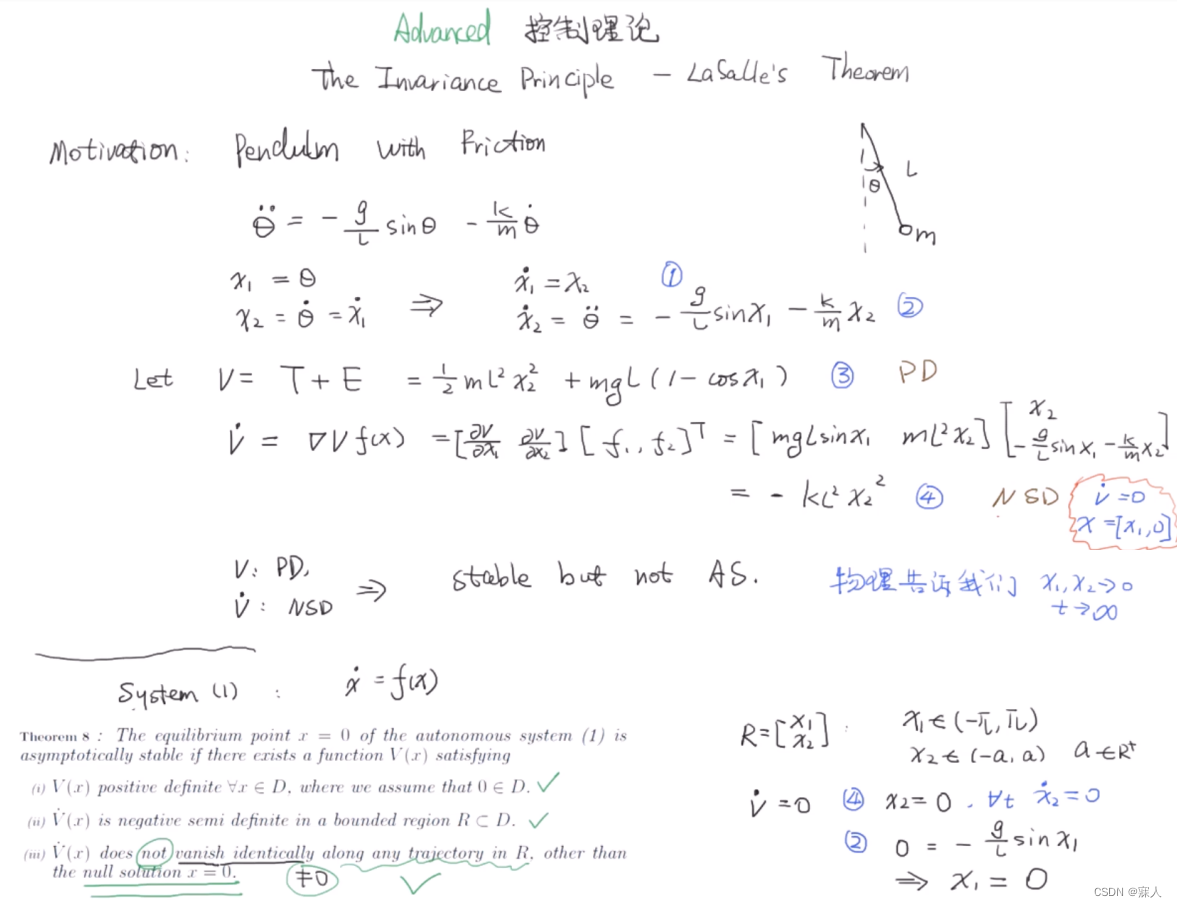 Advanced 控制理论
The Invariance Principle — LaSalle's Theorem
Motivation: Pendulm with Friction
θ̈ = - g/L sinθ - k/m θ̇
L
θ
m
x₁ = θ
x₂ = θ̇ = ẋ₁
⇒
ẋ₁ = x₂ ①
ẋ₂ = θ̈ = - g/L sinx₁ - k/m x₂ ②
Let V = T + E = 1/2 mL² x₂² + mgL (1 - cosx₁) ③ PD
V̇ = ∇V f(x) = [∂V/∂x₁ ∂V/∂x₂] [f₁, f₂]ᵀ = [mgLsinx₁ mL²x₂] [x₂ -g/L sinx₁ - k/m x₂]
= - kL² x₂² ④ NSD
V̇ = 0
x = [x₁, 0]
V: PD,
V̇: NSD
⇒ stable but not AS.
物理告诉我们 x₁, x₂ → 0
t → ∞
System (1) : ẋ = f(x)
Theorem 8 : The equilibrium point x = 0 of the autonomous system (1) is
asymptotically stable if there exists a function V(x) satisfying
(i) V(x) positive definite ∀x ∈ D, where we assume that 0 ∈ D. ✓
(ii) V̇(x) is negative semi definite in a bounded region R ⊂ D. ✓
(iii) V̇(x) does not vanish identically along any trajectory in R, other than
the null solution x = 0. ≠0 ✓
R = [x₁ x₂] : x₁ ∈ (-π, π)
x₂ ∈ (-a, a) a ∈ R⁺
V̇ = 0 ④ x₂ = 0 . ∀t ẋ₂ = 0
② 0 = - g/L sinx₁
⇒ x₁ = 0
CSDN @寐人